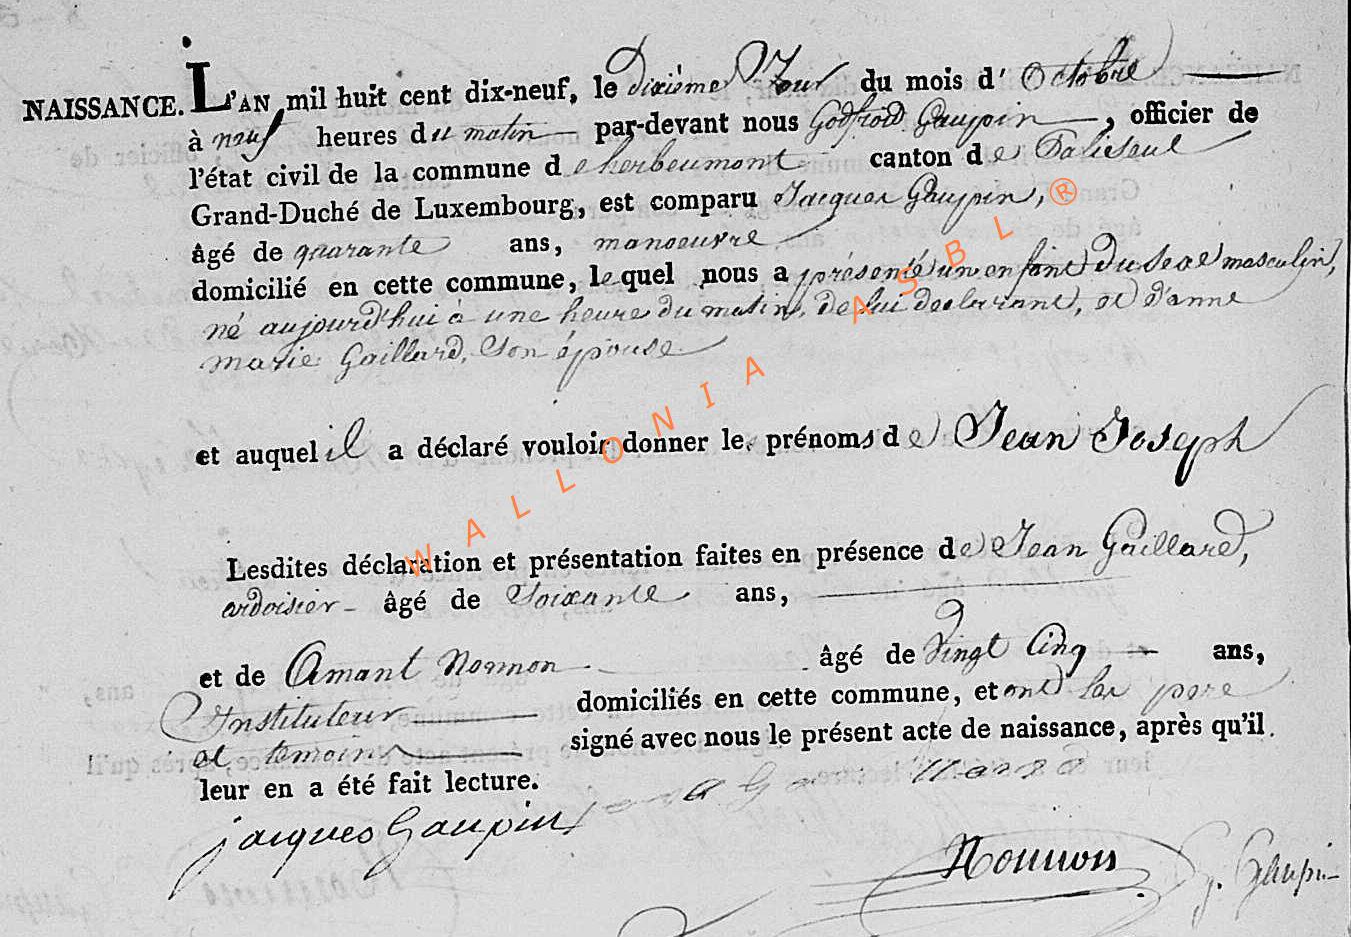 NAISSANCE. L'AN mil huit cent dix-neuf, le dixième Jour du mois d' Octobre
à neuf heures du matin par-devant nous Godfroid Gaupin, officier de
l'état civil de la commune de herbeumont canton de Paliseul
Grand-Duché de Luxembourg, est comparu Jacques Gaupin,
âgé de quarante ans, manoeuvre
domicilié en cette commune, lequel nous a présenté un enfant du sexe masculin,
né aujourd'hui à une heure du matin, de lui declarant, et d'anne
marie Gaillard, Son épouse
et auquel il a déclaré vouloir donner les prénoms de Jean Joseph
Lesdites déclaration et présentation faites en présence de Jean Gaillard,
ardoisier âgé de Soixante ans,
et de Amant Normon âgé de Vingt Cinq ans,
Instituteur domiciliés en cette commune, et ont les pere
et temoins signé avec nous le présent acte de naissance, après qu'il
leur en a été fait lecture.
jacques Gaupin
Gaupin
WALLONIA ASBL ®